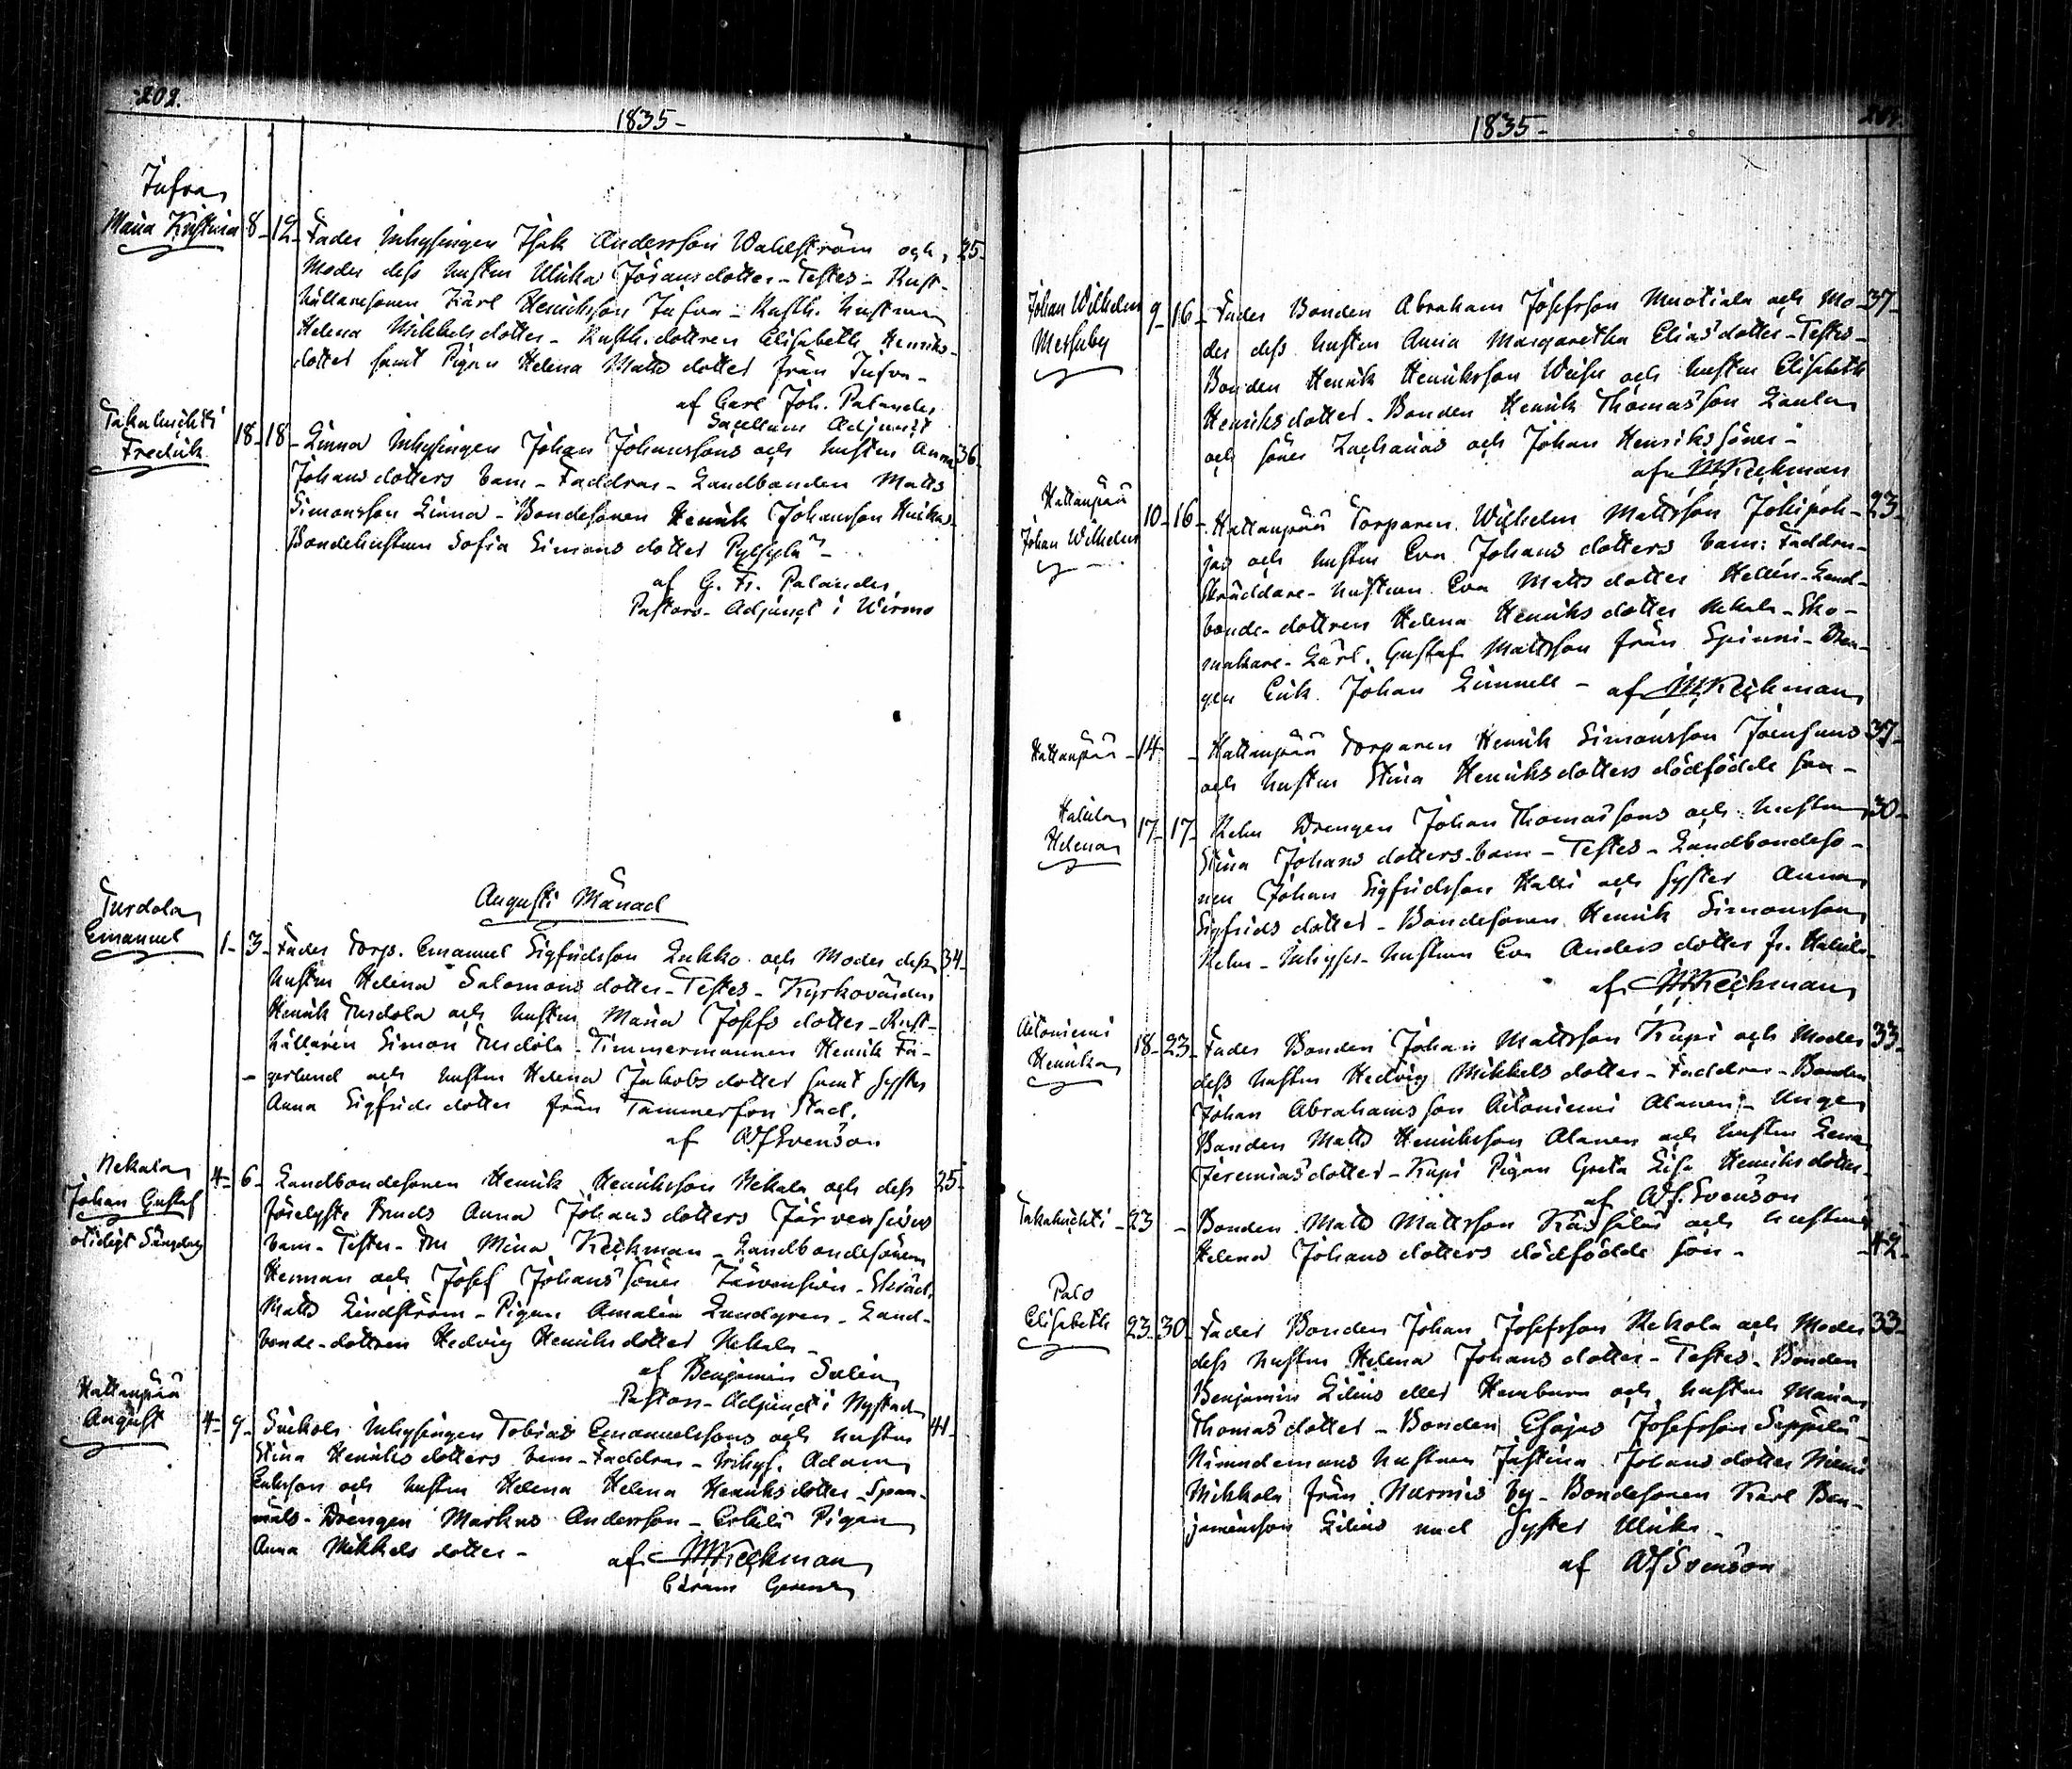 202.
1835-
Jufra
Maria Kristina 8- 12- Fader Inhysingen Isak Andersson Wahlström och 25-
Moder dess hustru Ulrika Jöransdotter - Testes - Rust-
hållaresonen Karl Henriksson Jufra - Rusth. hustrun
Helena Mikkelsdotter - Rusth. dottren Elisabeth Henriks-
dotter samt Pigan Helena Mattsdotter från Jufra -
af Carl Joh. Palander
Sacellans Adjunct
Takahuchti
Fredrik 18- 18- Linna Inhysingen Johan Johanssons och hustru Anna 36
Johansdotters barn - Faddrar - Landbonden Matts
Simonsson Linna - Bondesonen Henrik Johansson
Bondehustrun Sofia Simonsdotter
af G. Fr. Palander
Pastors-Adjunct i Wirmo
Augusti Månad
Turdola
Emanuel 1- 3- Fader Torp. Emanuel Sigfridsson Lukko och Moder dess 34-
hustru Helena Salomonsdotter - Testes - Kyrkovärden
Henrik Turdola och hustru Maria Josefsdotter - Rust-
hållaren Simon Turdola - Timmermannen Henrik Fa-
- gerlund och hustru Helena Jakobsdotter samt Syster
Anna Sigfridsdotter från Tammerfors Stad.
af Ad Svenson
Nekala
Johan Gustaf 4- 6- Landbondesonen Henrik Henriksson Nekala och dess 25-
otidigt Sängelag förelyste Bruds Anna Johansdotters Järvensivus
barn - Testes - Fru Mina Keckman - Landbondesönern
Herman och Josef Johanssöner Järvensivu - Skräd.
Matts Lindström - Pigan Amalia Lundgren - Land-
bonde-dottren Hedvig Henriksdotter Nekala -
af Benjamin Salin
Pastors-Adjunct i Nystad
Hattanpää
August 4- 9- Inhysingen Tobias Emanuelssons och hustru 41-
Stina Henriksdotters barn - Faddrar - Inhys. Adam
Eriksson och hustru Helena Helena Henriksdotter -
Drengen Markus Andersson - Pigan
Anna Mikkelsdotter -
af M Keckman
1835-
Johan Wilhelm 9- 16- Fader Bonden Abraham Josefsson Muotiala och Mo- 37-
Messuby der dess hustru Anna Margaretha Eliasdotter - Testes -
Bonden Henrik Henriksson och hustru Elisabeth
Henriksdotter - Bonden Henrik Thomasson Laula
och söner Zacharias och Johan Henrikssöner -
af M Keckman
Hattanpää
Johan Wilhelm 10- 16- Hattanpää Torparen Wilhelm Mattsson Jokipoh- 23-
jas och hustru Eva Johansdotters barn: Faddrar -
Skräddare-hustrun Eva Mattsdotter Hellén - Land-
bonde-dottren Helena Henriksdotter Nekala - Sko-
makare-Lärl. Gustaf Mattsson från Spinni - Dren-
gen Erik Johan Linnell - af M Keckman
Hattanpää - 14- - Hattanpää Torparen Henrik Simonsson Joensuus 37-
och hustru Stina Henriksdotters dödfödde son -
Halila
Helena 17- 17- Rehn Drengen Johan Thomassons och hustru 30-
Stina Johansdotters barn - Testes - Landbondeso-
nen Johan Sigfridsson Halli och Syster Anna
Sigfridsdotter - Bondesonen Henrik Simonsson
Inhyses-hustrun Eva Andersdotter fr. Halila
af M Keckman
Aitoniemi
Henrika 18- 23- Fader Bonden Johan Mattsson Kupi och Moder 33-
dess hustru Hedvig Mikkelsdotter - Faddrar - Bonden
Johan Abrahamsson Aitoniemi Alanen - Unge
Bonden Matts Henriksson Alanen och hustru Lena
Jeremiasdotter - Kupi Pigan Greta Lisa Henriksdotter -
af Ad. Svenson
Takahuchti - 23 - Bonden Matts Mattsson och hustru
Helena Johansdotters dödfödde son - -42-
Palo
Elisabeth 23- 30- Fader Bonden Johan Josefsson Kekola och Moder 33-
dess hustru Helena Johansdotter - Testes - Bonden
Benjamin Lilius eller och hustru Maria
Thomasdotter - Bonden Esajas Josefsson Seppälä -
Nimndemans hustrun Justina Johansdotter Niemi
Mikkola från by - Bondesonen Karl Ben-
jaminsson Lilius med Syster Ulrika -
af Ad Svenson